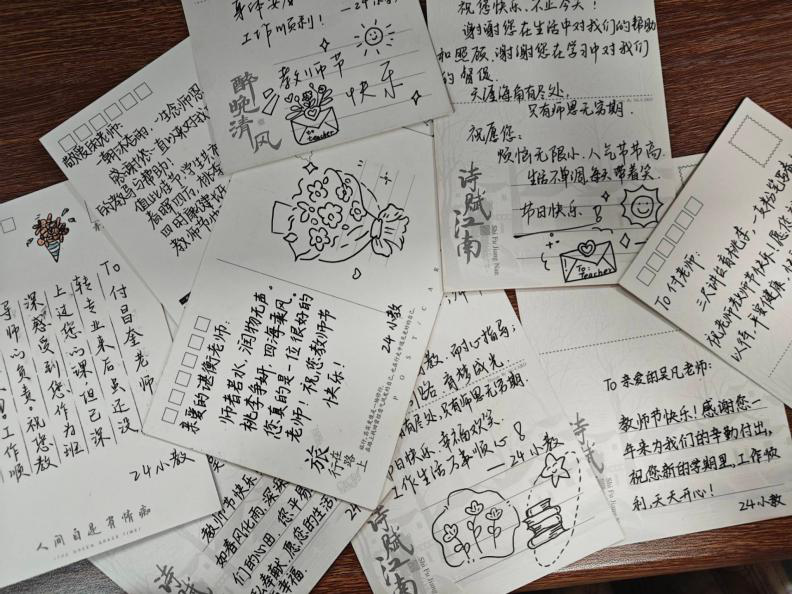 工作顺利!
—24小教
教师节
快乐
醉晚清风
To teacher
祝您快乐,不止今天!
谢谢您在生活中对我们的帮助
和照顾,谢谢您在学习中对我们
的督促
天涯海角有尽处,
只有师恩无穷期.
祝愿您:
烦恼无限小,人气节节高
生活不单调,每天带着笑
节日快乐!
诗赋江南
Shi Fu Jiang Nan
To: Teacher
敬爱的老师:
一生念师恩
感谢您一直以来对我
的教导与帮助!
值此佳节,学生在
春晖四方,桃李
四时康健
教师节快
To 付昌奎老师
转专业来后虽还没
上过您的课,但已深
深感受到您作为班
导师的负责。祝您教
工作顺
24小教
人间自是有情痴
亲爱的谌衡老师:
师者若水,润物无声。
桃李争妍,四海乘风。
您真的是一位很好的
老师!祝您教师节
快乐!
24小教
旅行在路上
POSTCARD
To 付老师:
三尺讲台育桃李,一支粉笔
祝老师教师节快乐!愿您
以待,平安健康,
耐心指导;
有尽处,只有师恩无穷期.
日快乐,幸福欢笑.
工作生活万事顺心!
—24小教
诗赋江南
Shi Fu Jiang Nan
To 亲爱的吴凡老师:
教师节快乐!感谢您一
年来为我们的辛勤付出,
祝您新的学期里,工作顺
利,天天开心!
24小教
诗赋
教师节快乐
如春风化雨,
们的心田,您平易
奉献,愿您的生活
幸福.
24
诗赋